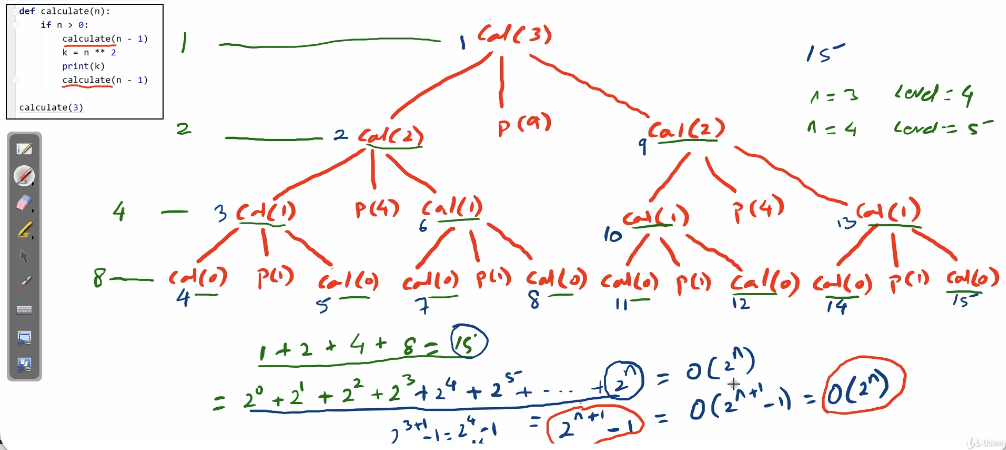 def calculate(n):
if n > 0:
calculate(n - 1)
k = n ** 2
print(k)
calculate(n - 1)
calculate(3)
1 1 Cal(3) 15
n=3 Level=4
n=4 Level=5
2 2 Cal(2) P(9) 9 Cal(2)
4 3 Cal(1) P(4) 6 Cal(1) 10 Cal(1) P(4) 13 Cal(1)
8 Cal(0) P(1) Cal(0) Cal(0) P(1) Cal(0) Cal(0) P(1) Cal(0) Cal(0) P(1) Cal(0)
4 5 7 8 11 12 14 15
1+2+4+8=15
= 2^0+2^1+2^2+2^3+2^4+2^5+.....+2^n = O(2^n)
2^3+1-1=2^4-1 = 2^n+1-1 = O(2^n+1-1) = O(2^n)
Udemy